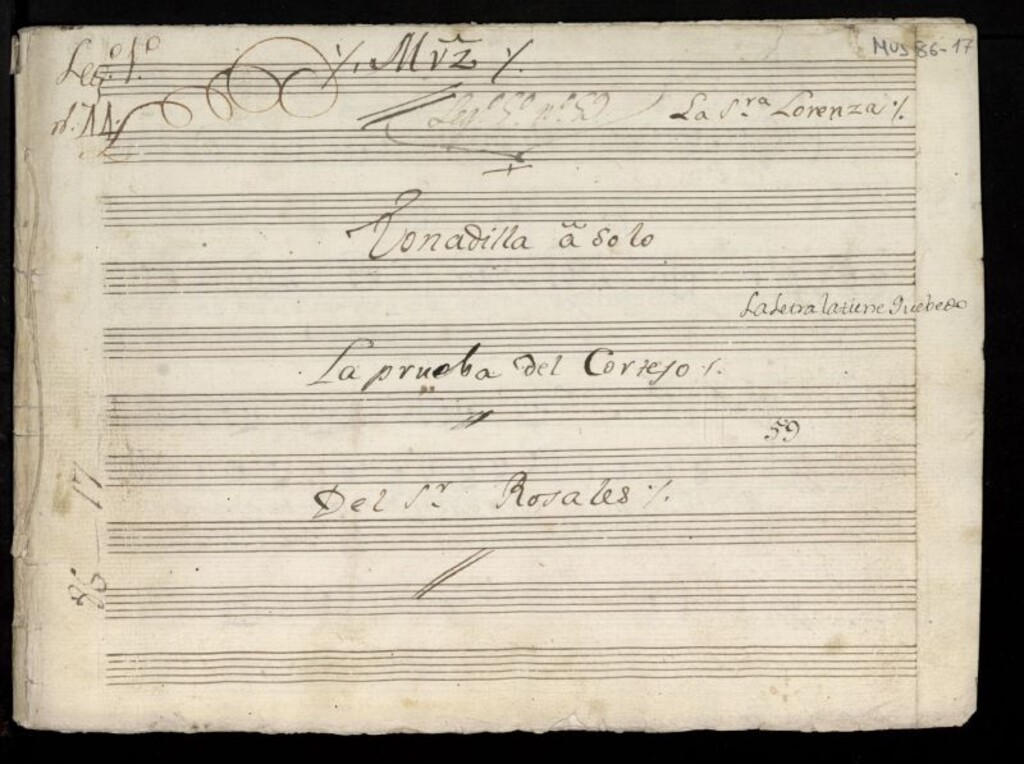 Leg.º 1.º
·/. Mrz̃ ·/.
MUS 86-17
n.º 14.
Leg.º 5.º n.º 59
La S.ra Lorenza ·/.
Tonadilla â solo
La Letra la tiene Quebedo
La prueba del Cortejo ·/.
59
Del S.r Rosales ·/.
86-17